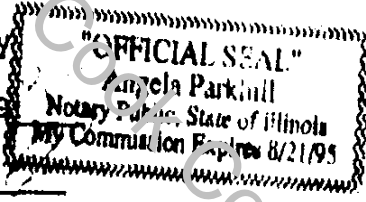 "OFFICIAL SEAL"
Angela Parkhill
Notary Public, State of Illinois
My Commission Expires 8/21/95
Cook Co